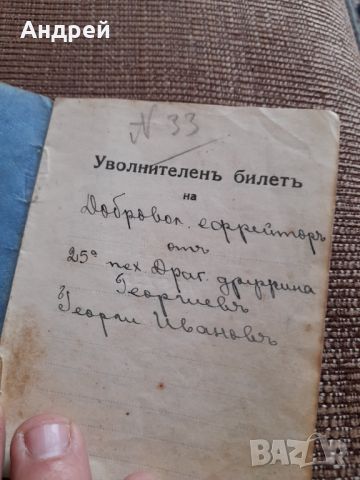 Андрей
N 33
Уволнителенъ билетъ
на
Добровол. ефрейторъ
отъ
25ª пех. Драг. дружина
Георгиевъ
Георги Ивановъ
BAZAR